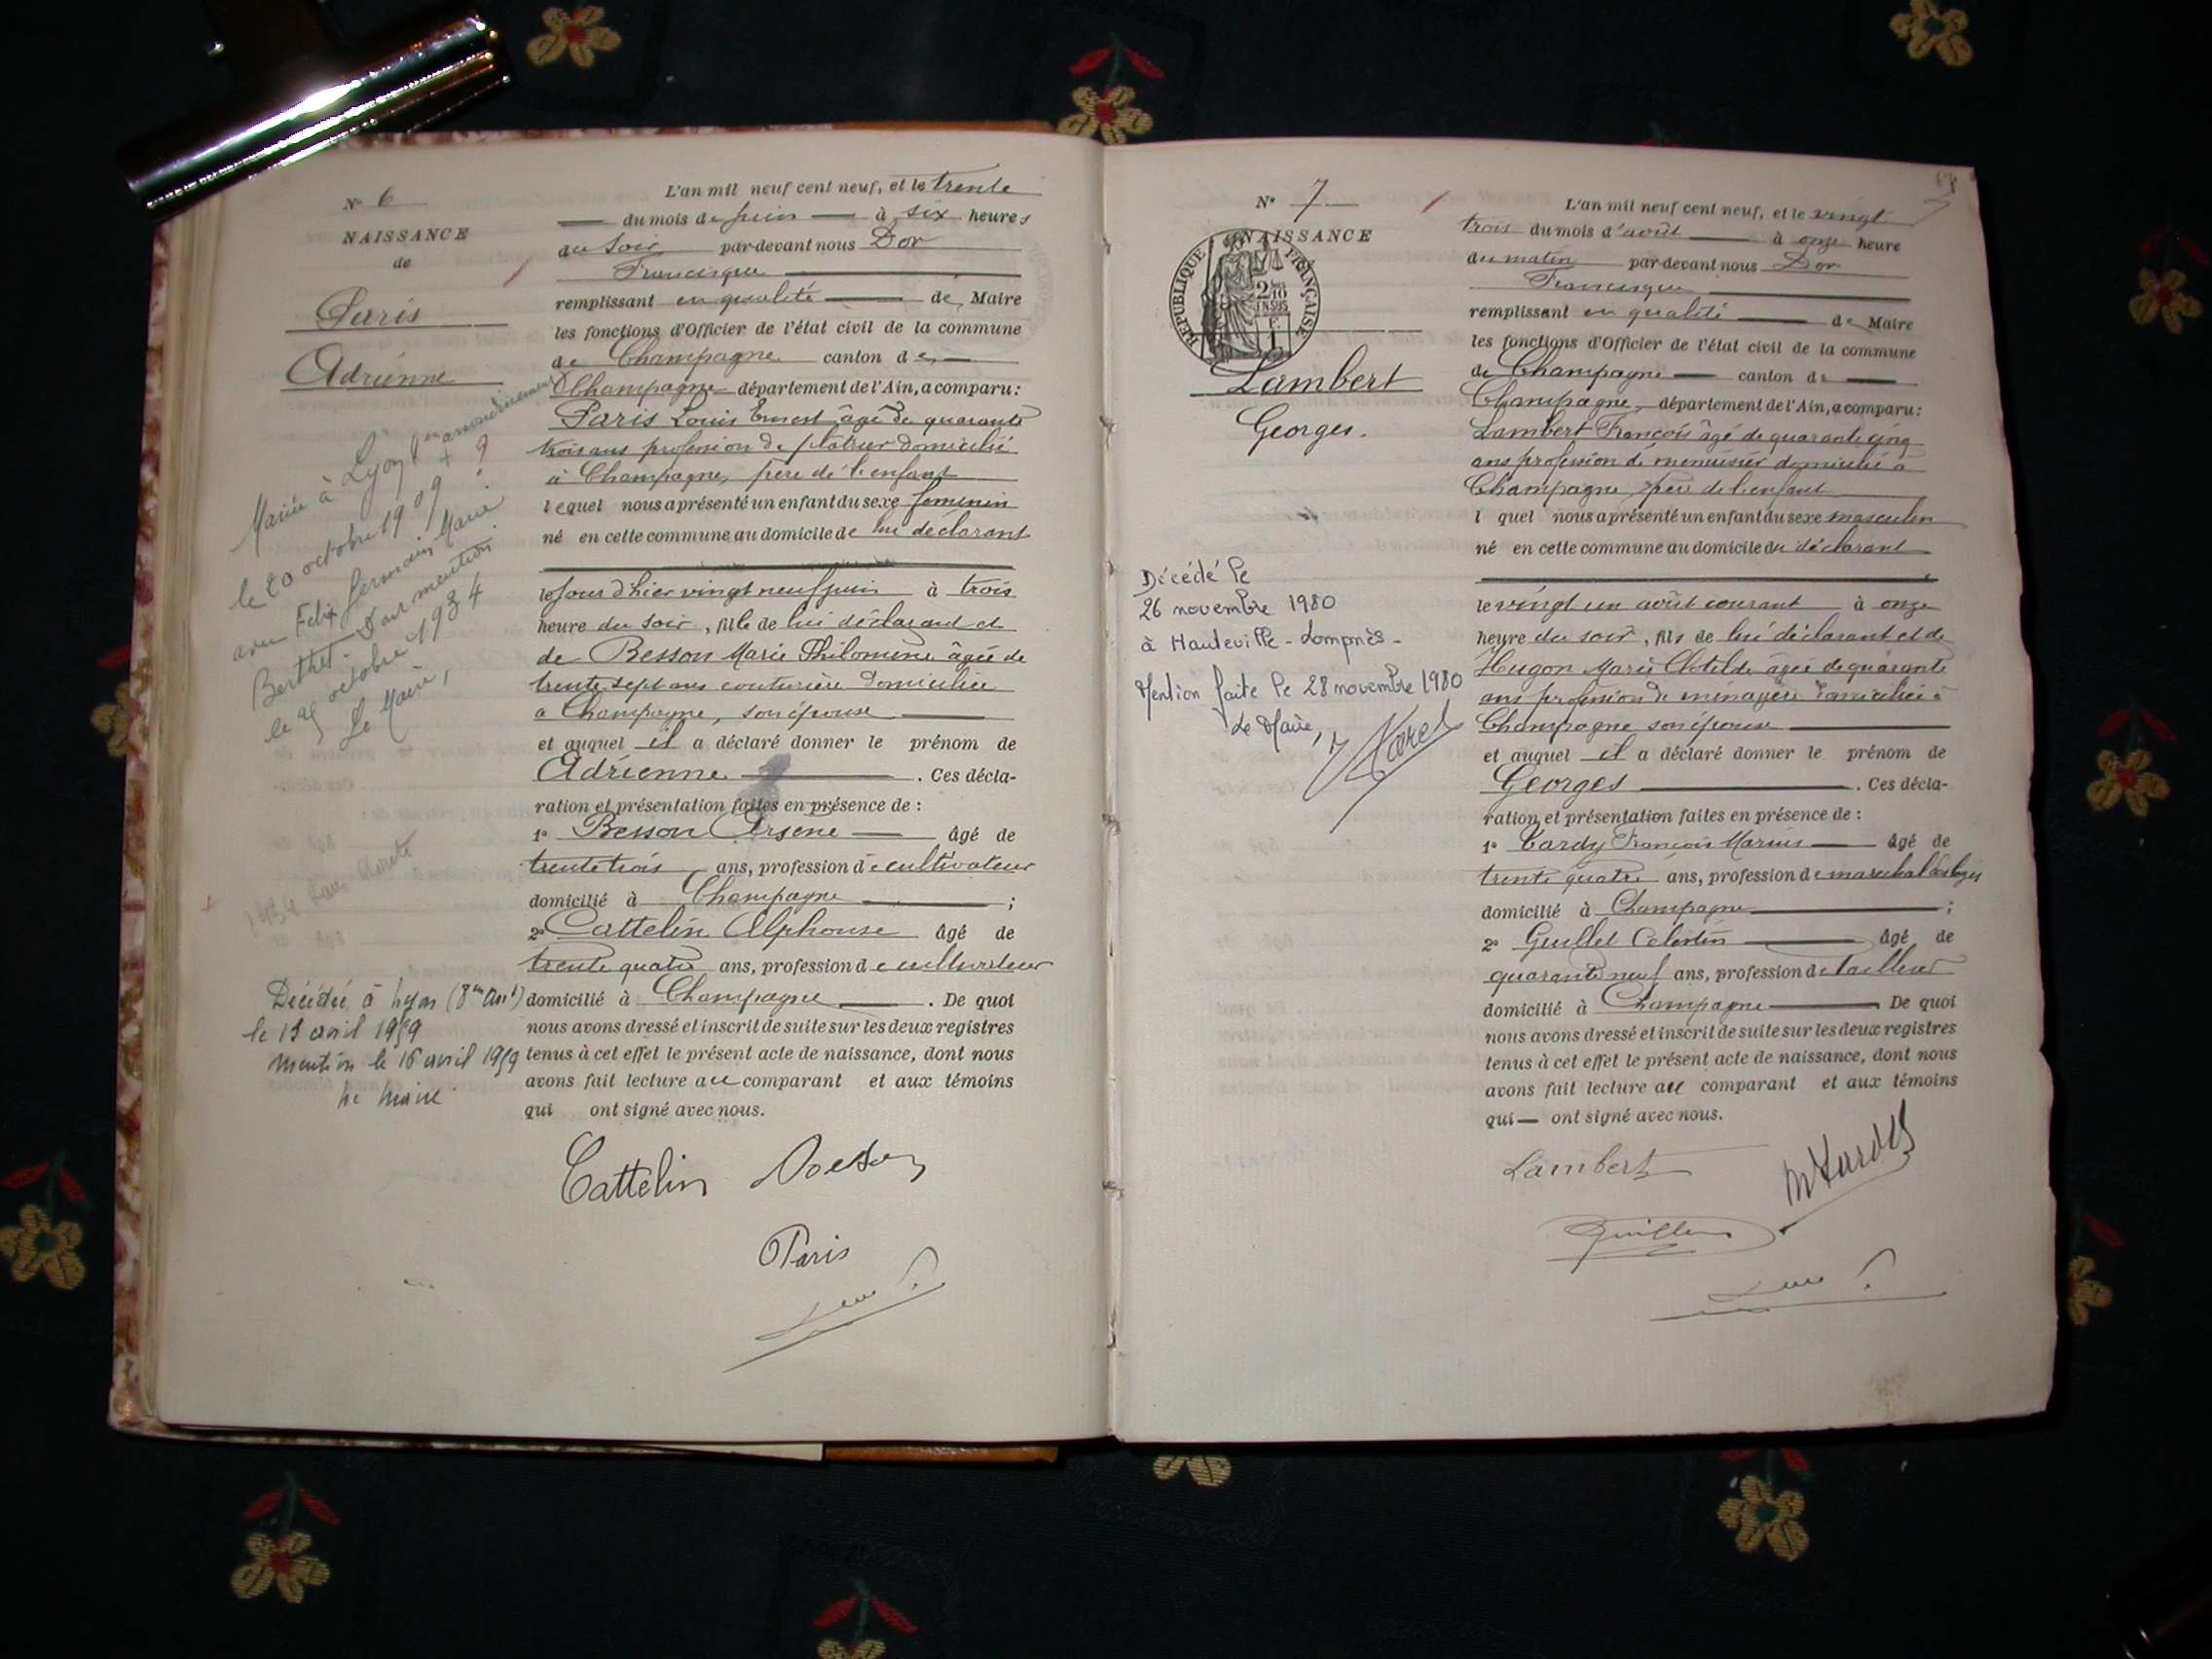 N° 6
NAISSANCE
de
Paris
Adrienne
Mariée à Lyon 1er arrondissement
le 20 octobre 1909 + ?
avec Felix Germain Marie
Berthet. Dont mention
le 25 octobre 1934
Le Maire,
Décédée à Lyon (8em Art)
le 13 avril 1959
Mention le 16 avril 1959
Le Maire
L'an mil neuf cent neuf, et le trente
du mois de juin à six heures
du soir par-devant nous Dor
Francisque
remplissant en qualité de Maire
les fonctions d'Officier de l'état civil de la commune
de Champagne canton de
Champagne département de l'Ain, a comparu :
Paris Louis Ernest âgé de quarante
trois ans profession de platrier domicilié
à Champagne, père de l'enfant
lequel nous a présenté un enfant du sexe feminin
né en cette commune au domicile de lui déclarant
le jour d'hier vingt neuf juin à trois
heure du soir, fille de lui déclarant et
de Besson Marie Philomène âgée de
trente sept ans couturière domiciliée
à Champagne, son épouse
et auquel il a déclaré donner le prénom de
Adrienne. Ces décla-
ration et présentation faites en présence de :
1° Besson Arsene âgé de
trente trois ans, profession de cultivateur
domicilié à Champagne ;
2° Cattelin Alphonse âgé de
trente quatre ans, profession de cultivateur
domicilié à Champagne. De quoi
nous avons dressé et inscrit de suite sur les deux registres
tenus à cet effet le présent acte de naissance, dont nous
avons fait lecture au comparant et aux témoins
qui ont signé avec nous.
Cattelin Besson
Paris
N° 7
NAISSANCE
RÉPUBLIQUE FRANÇAISE
2/10 EN SUS
Lambert
Georges.
Décédé le
26 novembre 1980
à Hauteville-Lompnès-
Mention faite le 28 novembre 1980
Le Maire,
7
L'an mil neuf cent neuf, et le vingt
trois du mois d'août à onze heure
du matin par-devant nous Dor
Francisque
remplissant en qualité de Maire
les fonctions d'Officier de l'état civil de la commune
de Champagne canton de
Champagne, département de l'Ain, a comparu :
Lambert François âgé de quarante cinq
ans profession de menuisier domicilié à
Champagne père de l'enfant
l quel nous a présenté un enfant du sexe masculin
né en cette commune au domicile du déclarant
le vingt un août courant à onze
heure du soir, fils de lui déclarant et de
Hugon Marie Clotilde âgée de quarante
ans profession de ménagère domiciliée à
Champagne son épouse
et auquel il a déclaré donner le prénom de
Georges. Ces décla-
ration et présentation faites en présence de :
1° Tardy François Marius âgé de
trente quatre ans, profession de marechal des logis
domicilié à Champagne ;
2° Guillet Celestin âgé de
quarante neuf ans, profession de tailleur
domicilié à Champagne De quoi
nous avons dressé et inscrit de suite sur les deux registres
tenus à cet effet le présent acte de naissance, dont nous
avons fait lecture au comparant et aux témoins
qui — ont signé avec nous.
Lambert M Tardy
Guillet